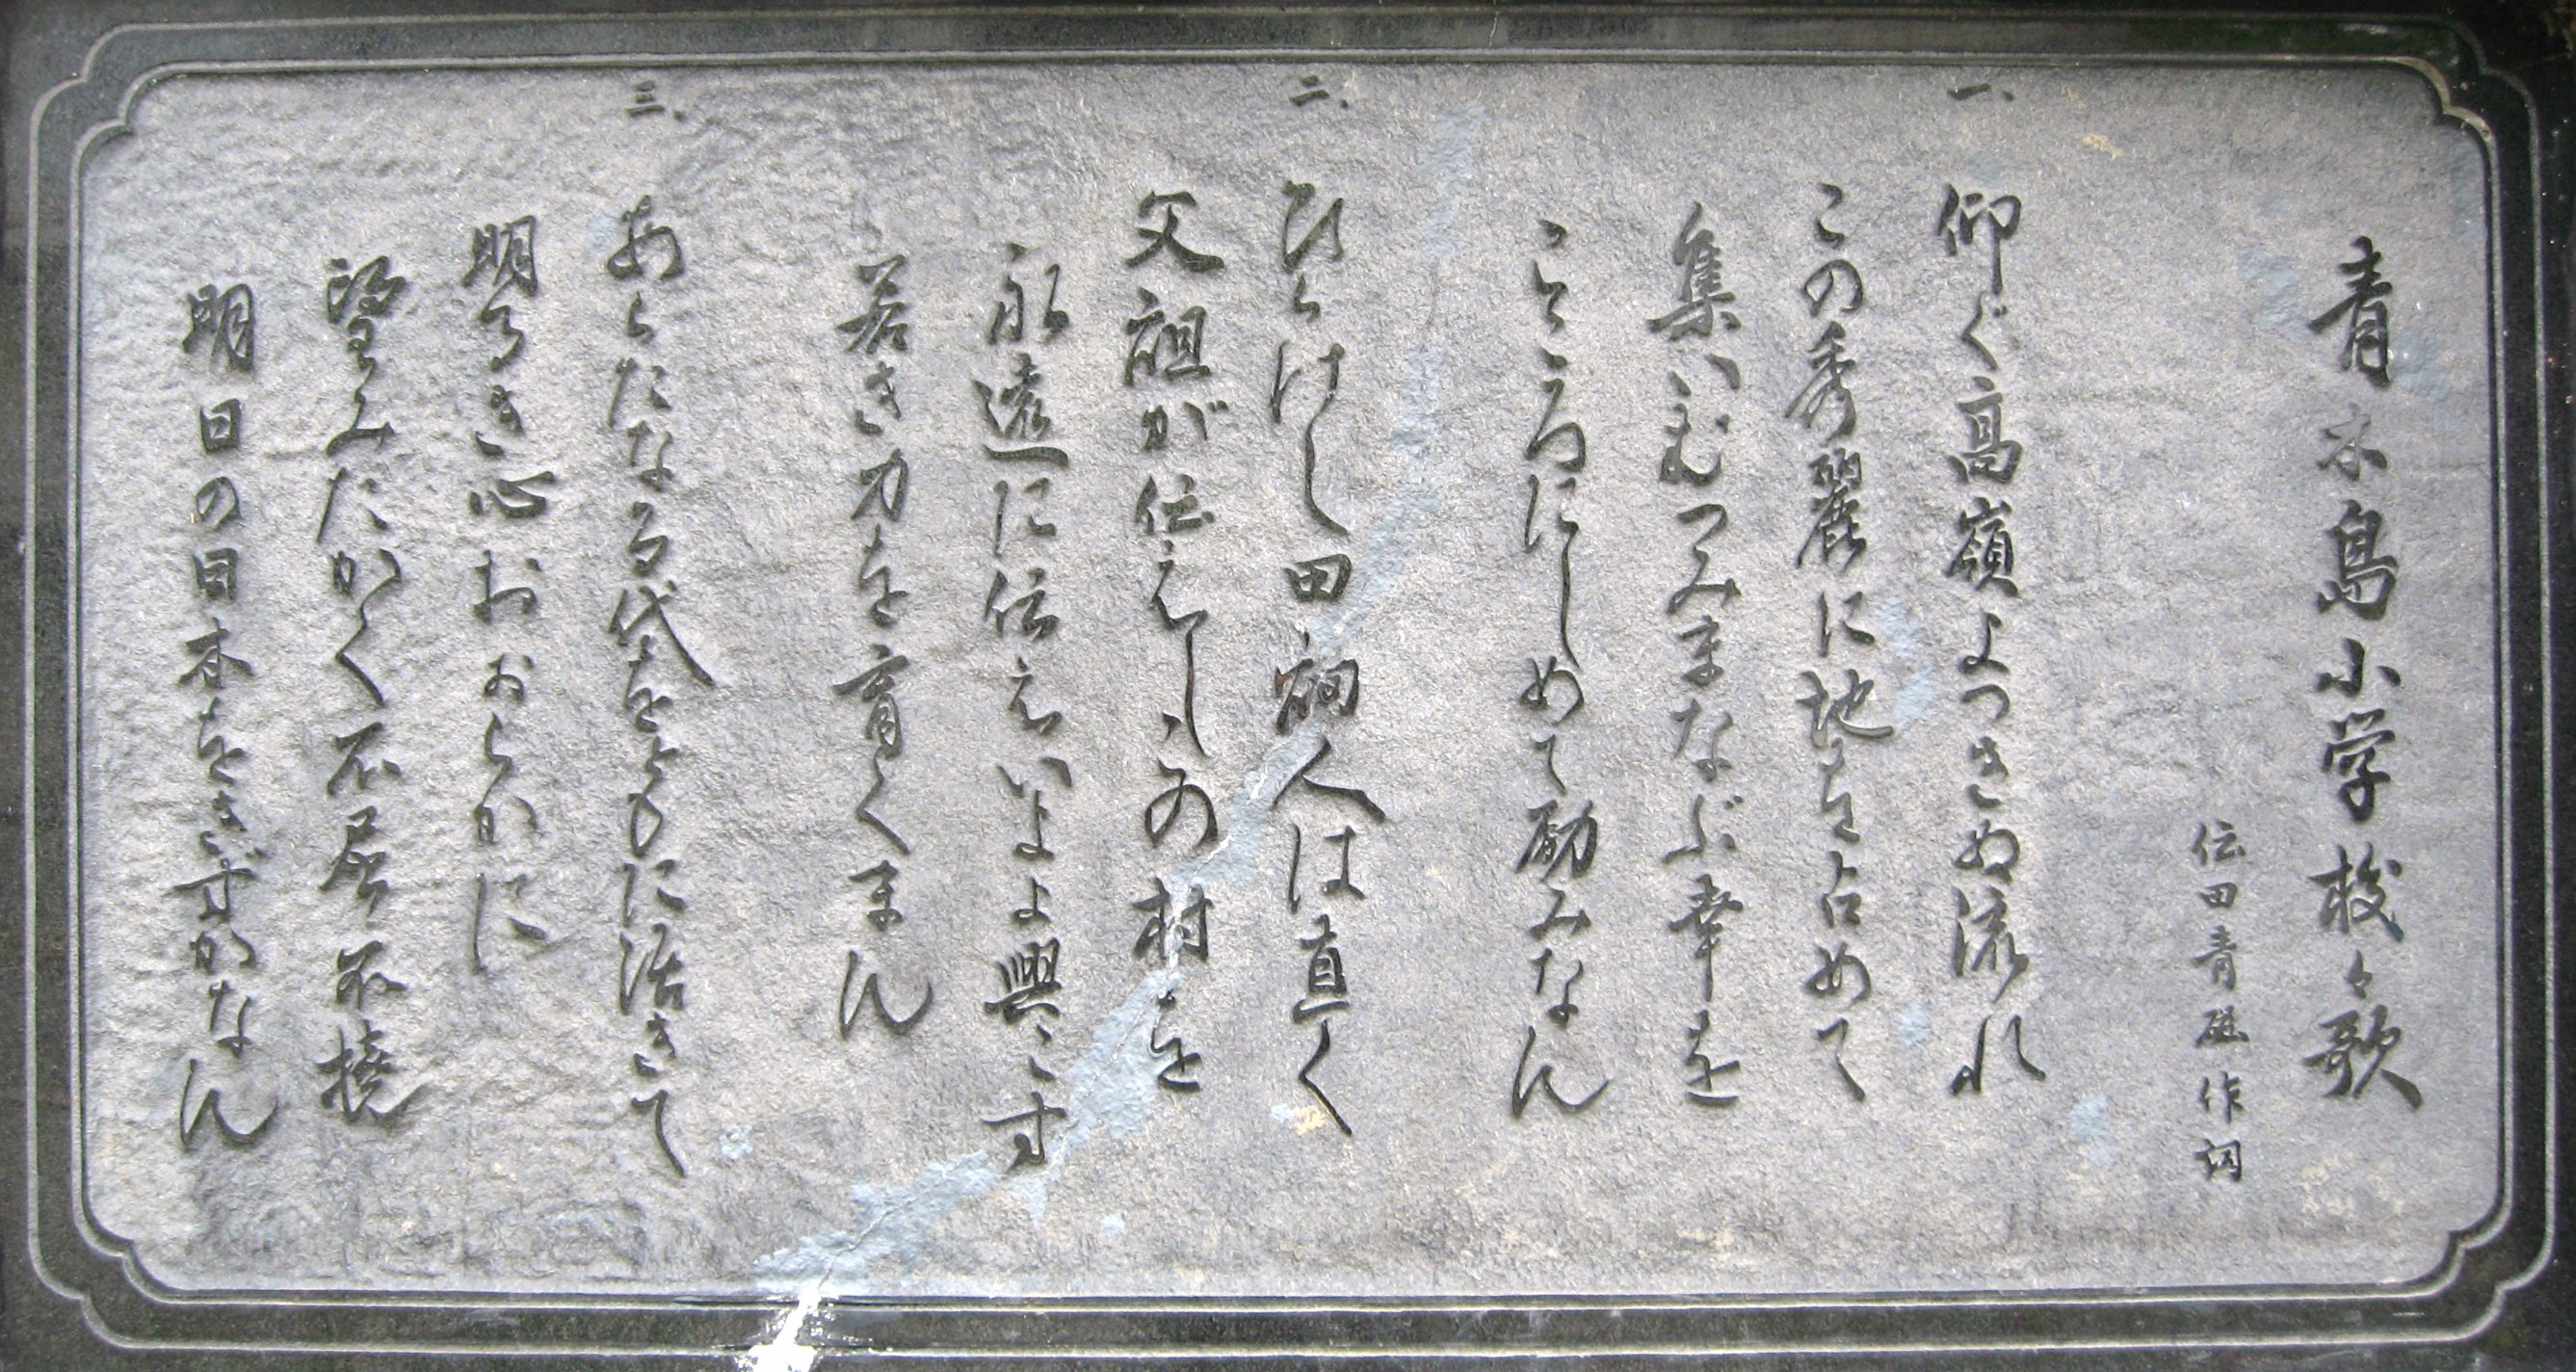 青木島小学校々歌
伝田青磁作詞
一、
仰ぐ高嶺よつきぬ流れ
この秀麗に地を占めて
集いむつみまなぶ幸を
こころにしめて励みなん
二、
ひらけし田畑人は直く
父祖が伝えしこの村を
永遠に伝えいよよ興こす
若き力を育くまん
三、
あらたなる代をともに活きて
明るき心おおらかに
望みたかく不屈不撓
明日の日本をきずかなん